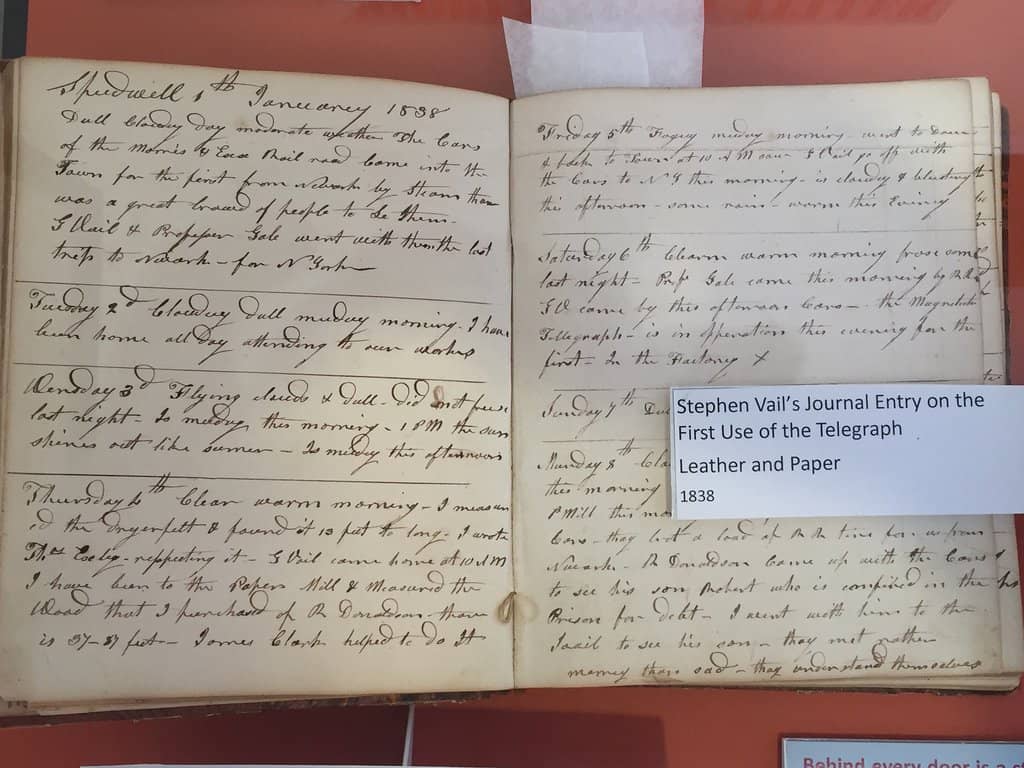 Speedwell 1th Januarey 1838
Dull Clowdey day moderate weather The Cars
of the Morris & Essex Rail road Came into the
Town for the first from Newark by Steam thare
was a great Crowd of people to Se them
G Vail & Professer Gale went with them the last
trip to Newark - for N York
Tuesday 2d Clowdey Dull muddy morning - I have
been home all day attending to our works
Wensday 3d Flying clouds & dull - did not freese
last night - Is muddy this morning - 1 PM the sun
shines out like sumer - Is muddy this afternoon
Thursday 4th Clear warm morning - I measur
ed the Dryerfelt & found it 13 feet to long - I wrote
Thos respecting it - G Vail came home at 10 AM
I have been to the Paper Mill & Measured the
Wood that I purchased of R Donaldson thare
is 37-87 feet - James Clark helped to do It
Friday 5th Fogey muddy morning - went to
& back to Town at 10 A M G Vail go off with
the Cars to N Y this morning - is clowdey & blusting
this afternoon - some rain - warm this Evning
Saturday 6th Clearm warm morning frose some
last night - Prof Gale came this morning by R Road
G V came by this afternoon Cars - the Magnetick
Telegraph - is in opperation this evening for the
first - In the Factorey X
Sunday 7th Dul
Munday 8th Cla
this morning
P Mill this mo
Cars - they bot a load of R R for us from
Newark - R Donaldson Came up with the Cars
to see his son Robert who is confined in the
Prison for debt - I went with him to the
Jaail to see his son - they met rather
merrey than sad - they understand themselves
Stephen Vail's Journal Entry on the
First Use of the Telegraph
Leather and Paper
1838
Behind every door is a